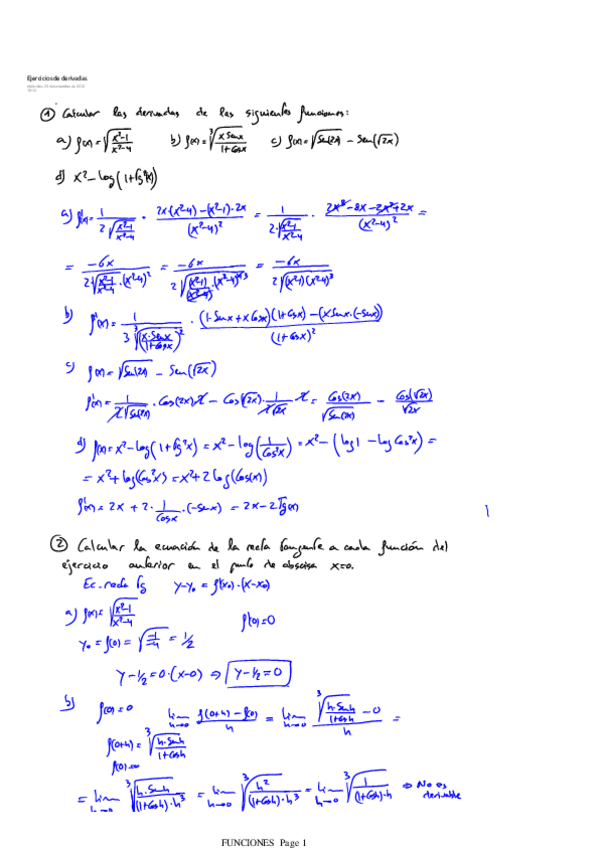 Ejercicios de derivadas
① Calcular las derivadas de las siguientes funciones:
a) f(x)=√((x²-1)/(x²-4)) b) f(x)=∛((x Senx)/(1+Cosx)) c) f(x)=√(Sen(2x)) - Sen(√(2x))
d) x²-log(1+tg²(x))
a) f'(x)= 1/(2√((x²-1)/(x²-4))) · (2x·(x²-4)-(x²-1)·2x)/(x²-4)² = 1/(2·√((x²-1)/(x²-4))) · (2x³-8x-2x³+2x)/(x²-4)² =
= -6x/(2√((x²-1)/(x²-4))·(x²-4)²) = -6x/(2√((x²-1)/(x²-4)·(x²-4)⁴ ³)) = -6x/(2√((x²-1)(x²-4)³))
b) f'(x)= 1/(3∛((x·Senx)/(1+Cosx))²) · ((1·Senx+xCosx)(1+Cosx)-(xSenx·(-Senx))/(1+Cosx)²
c) f(x)=√(Sen(2x)) - Sen(√(2x))
f'(x)= 1/(2√(Sen(2x)))·Cos(2x)·2 - Cos(√(2x))·1/(2√(2x))·2 = Cos(2x)/√(Sen(2x)) - Cos(√(2x))/√(2x)
d) f(x)=x²-log(1+tg²x)=x²-log(1/Cos²x)=x²-(log1-logCos²x)=
=x²+log(Cos²x)=x²+2log(Cos(x))
f'(x)=2x+2·1/Cosx·(-Senx)=2x-2Tg(x)
1
② Calcular la ecuación de la recta tangente a cada función del
ejercicio anterior en el punto de abscisa x=0.
Ec. recta tg y-y₀=f'(x₀)·(x-x₀)
a) f(x)=√((x²-1)/(x²-4)) f'(0)=0
y₀=f(0)=√(-1/-4)=1/2
y-1/2=0·(x-0) ⇒ y-1/2=0
b) f(0)=0 lim h→0 (f(0+h)-f(0))/h = lim h→0 (∛((h·Senh)/(1+Cosh))-0)/h =
f(0+h)=∛((h·Senh)/(1+Cosh))
f(0)=0
=lim h→0 ∛((h·Senh)/((1+Cosh)·h³)) = lim h→0 ∛(h²/((1+Cosh)·h³)) = lim h→0 ∛(1/((1+Cosh)·h)) ⇒ No es derivable
FUNCIONES Page 1